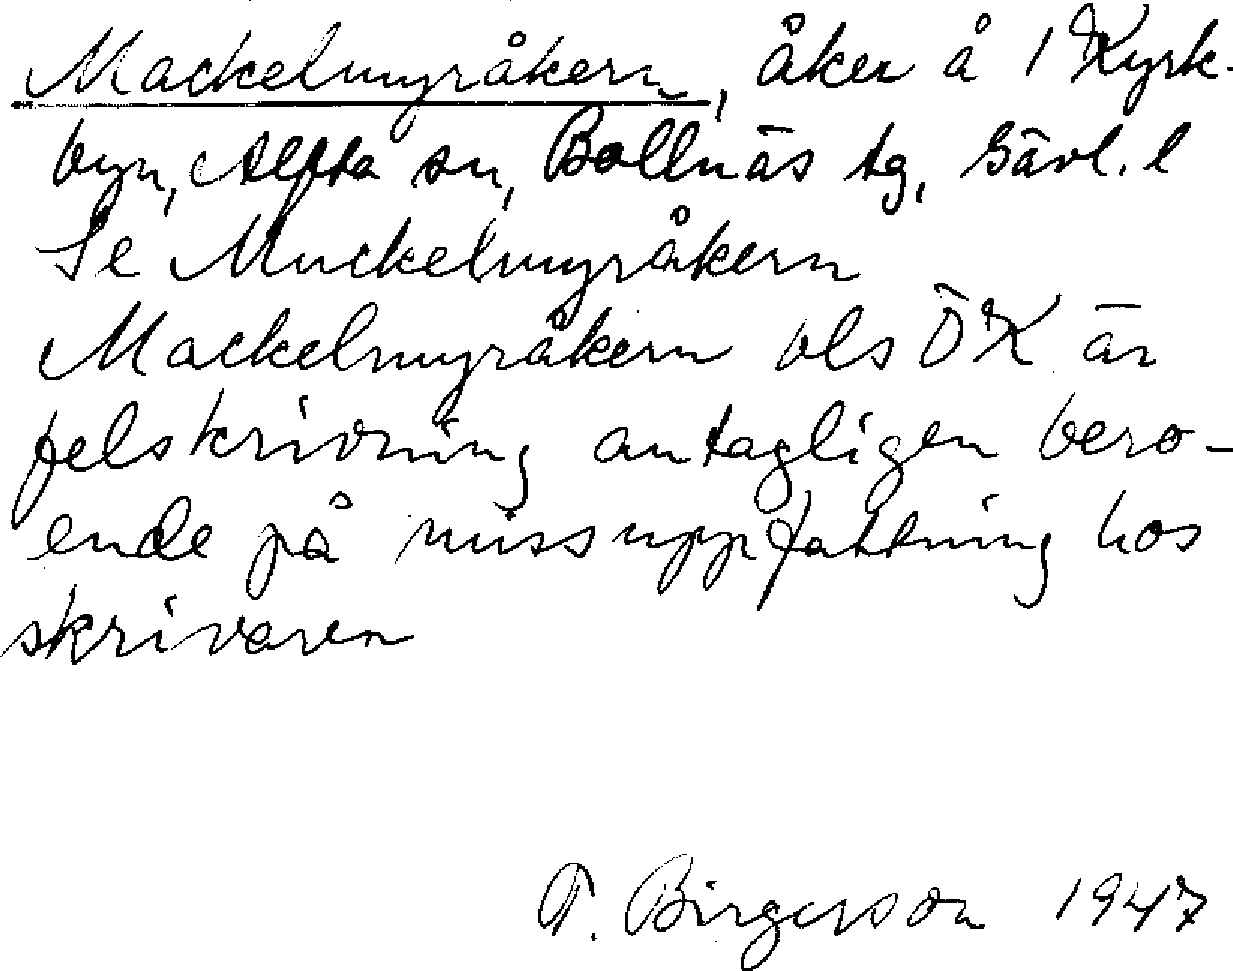 Mackelmyråkern, åker å 1 Kyrk-
byn, Alfta sn, Bollnäs tg, Gävl. l
Se Muckelmyråkern
Mackelmyråkern hls ÖK är
felskrivning antagligen bero-
ende på missuppfattning hos
skrivaren
T. Birgersson 1947